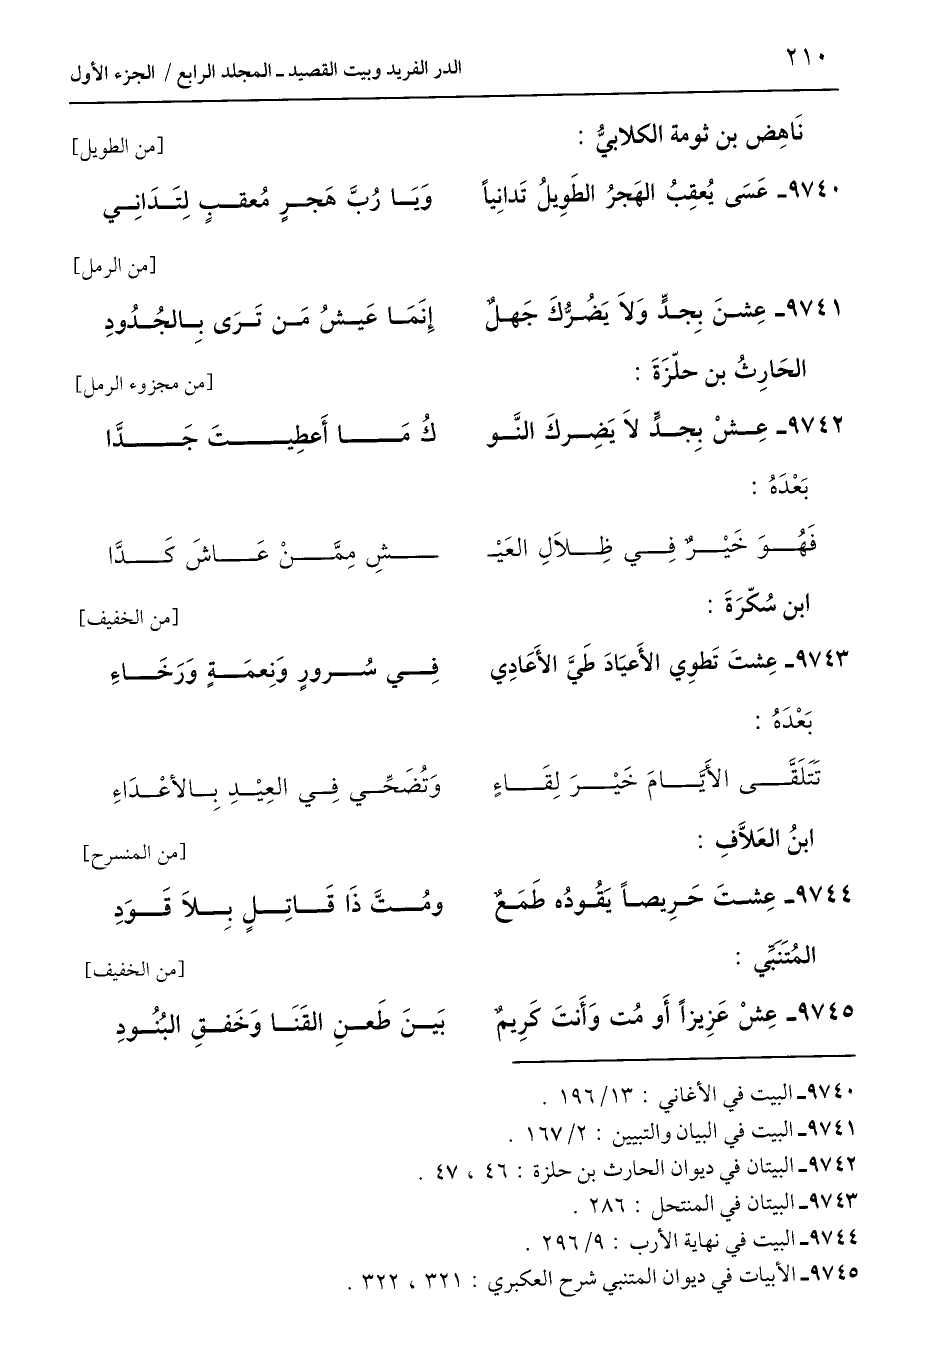 ٢١٠
الدر الفريد وبيت القصيد ـ المجلد الرابع / الجزء الأول
نَاهِض بن ثومة الكلابيُّ :
[من الطويل]
٩٧٤٠ـ عَسَى يُعقِبُ الهَجرُ الطَوِيلُ تَدانِياً وَيَا رُبَّ هَجرٍ مُعقبٍ لِتَدَانِي
[من الرمل]
٩٧٤١ـ عِشنَ بِجدٍّ وَلاَ يَضُرُّكَ جَهلٌ إنَمَا عَيشُ مَن تَرَى بِالجُدُودِ
الحَارِثُ بن حلّزَةَ :
[من مجزوء الرمل]
٩٧٤٢ـ عِشْ بِجدٍّ لاَ يَضِركَ النَّو كُ مَا أَعطِيتَ جَدَّا
بَعْدَهُ :
فَهُوَ خَيْرٌ فِي ظِلاَلِ العَيْـ ـشِ مِمَّنْ عَاشَ كَدَّا
ابن سُكّرَةَ :
[من الخفيف]
٩٧٤٣ـ عِشتَ تَطوِي الأَعيَادَ طَيَّ الأَعَادِي فِي سُرورٍ وَنِعمَةٍ وَرَخَاءِ
بَعْدَهُ :
تَتَلَقَّى الأَيَّامَ خَيْرَ لِقَاءٍ وَتُضَحِّي فِي العِيْدِ بِالأعْدَاءِ
ابنُ العَلاَّفِ :
[من المنسرح]
٩٧٤٤ـ عِشتَ حَرِيصاً يَقُودُه طَمَعٌ ومُتَّ ذَا قَاتِلٍ بِلاَ قَوَدِ
المُتَنَبِّي :
[من الخفيف]
٩٧٤٥ـ عِشْ عَزِيزاً أَو مُت وَأَنتَ كَرِيمٌ بَينَ طَعنِ القَنَا وَخَفقِ البُنُودِ
٩٧٤٠ـ البيت في الأغاني : ١٣/ ١٩٦ .
٩٧٤١ـ البيت في البيان والتبيين : ٢/ ١٦٧ .
٩٧٤٢ـ البيتان في ديوان الحارث بن حلزة : ٤٦ ، ٤٧ .
٩٧٤٣ـ البيتان في المنتحل : ٢٨٦ .
٩٧٤٤ـ البيت في نهاية الأرب : ٩/ ٢٩٦ .
٩٧٤٥ـ الأبيات في ديوان المتنبي شرح العكبري : ٣٢١ ، ٣٢٢ .